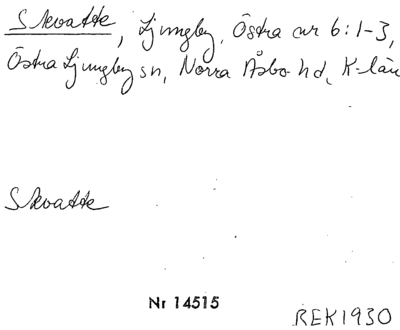 Skvatte, Ljungby, Östra nr 6:1-3,
Östra Ljungby sn, Norra Åsbo hd, K-län
Skvatte
Nr 14515
REK1930